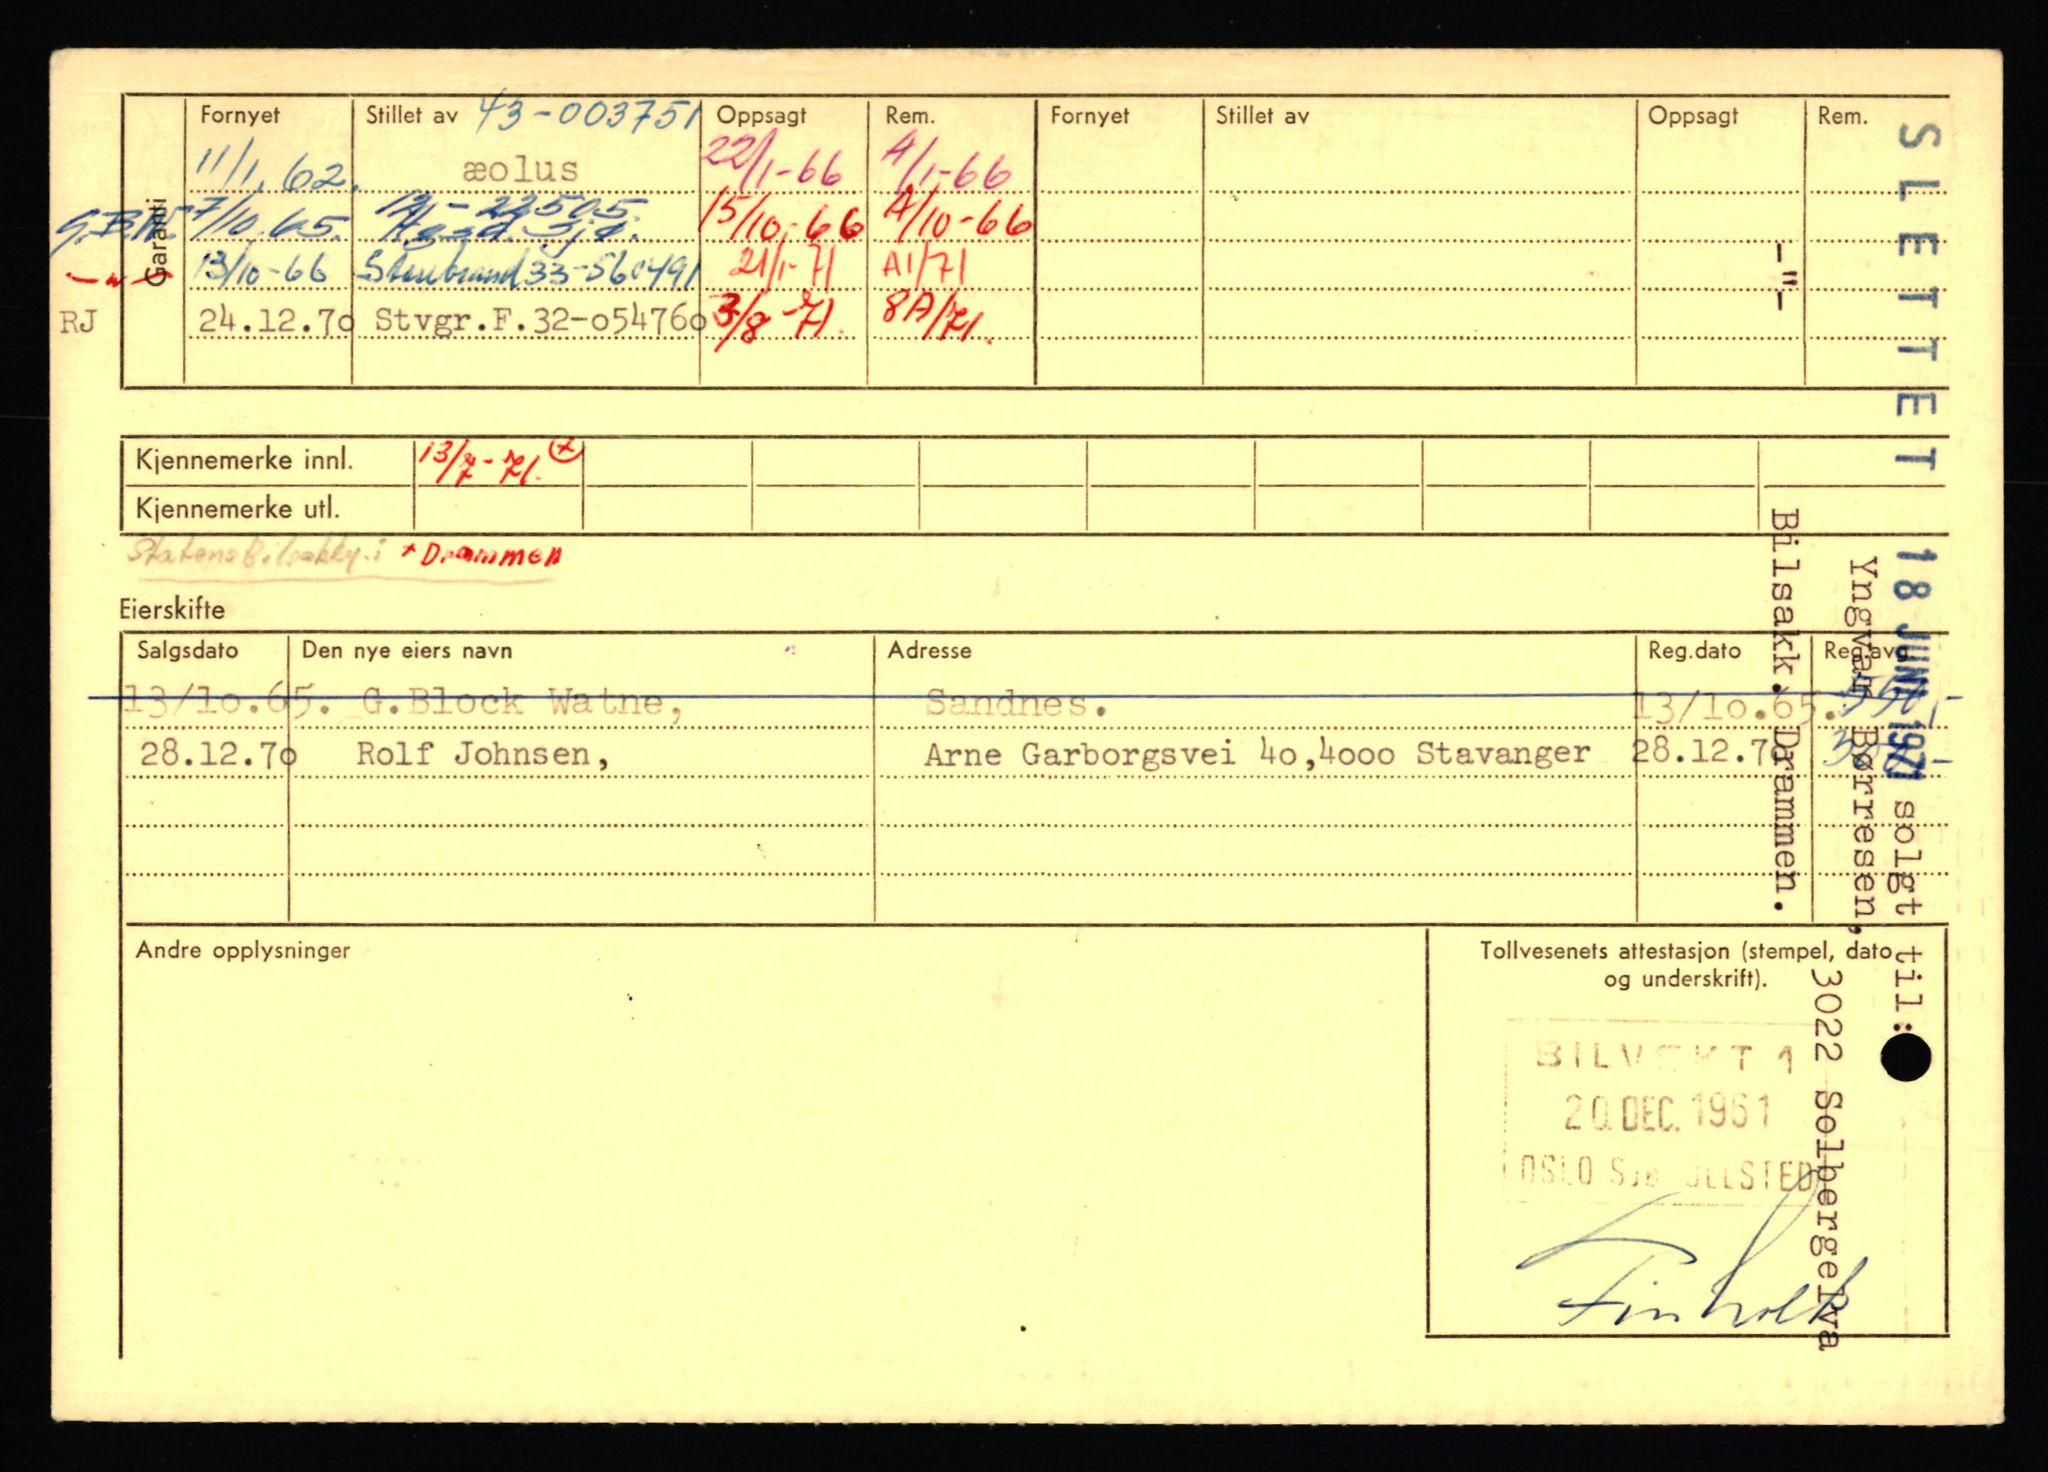 Garanti
Fornyet Stillet av 43-003751 Oppsagt Rem. Fornyet Stillet av Oppsagt Rem.
11/1.62. æolus 22/1-66 A/1-66
G.B.W. 7/10.65. 15/10-66 A/10-66
-"- 13/10-66 Storebrand 33-560491 21/1-71 A1/71
RJ 24.12.7o Stvgr.F.32-o5476o 3/8-71. 8A/71.
Kjennemerke innl. 13/7-71. +
Kjennemerke utl.
Statens Bilsakky. i + Drammen
Eierskifte
Salgsdato Den nye eiers navn Adresse Reg.dato Reg.avg
13/1o.65. G.Block Watne, Sandnes. 13/1o.65.
28.12.7o Rolf Johnsen, Arne Garborgsvei 4o,4ooo Stavanger 28.12.7o
Andre opplysninger
Tollvesenets attestasjon (stempel, dato
og underskrift).
BILVEKT 1
20.DEC.1961
OSLO
SLETTET 18 JUNI 1971 solgt til:
Yngvar Børresen,
3022 Solbergelva
-"- Bilsakk. Drammen.